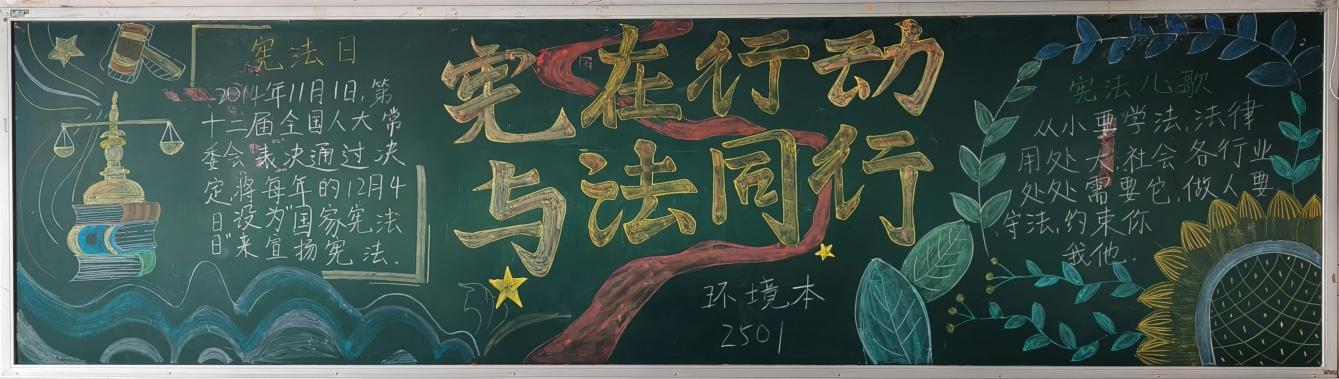 宪法日
2014年11月1日,第
十二届全国人大常
委会表决通过决
定,将每年的12月4
日设为“国家宪法
日”来宣扬宪法.
宪在行动
与法同行
环境本
2501
宪法儿歌
从小要学法,法律
用处大,社会各行业
处处需要它,做人要
守法,约束你
我他.